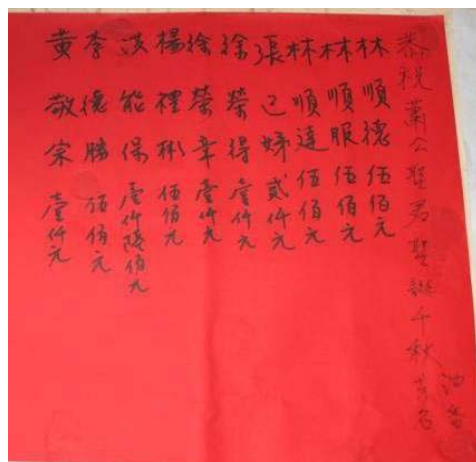 恭祝蕭公聖君聖誕千秋芳名
油香
林順德伍佰元
林順服伍佰元
林順達伍佰元
張己婦貳仟元
徐榮得壹仟元
徐榮章壹仟元
楊禮彬伍佰元
洪能保壹仟陸佰元
李德勝伍佰元
黃敬宗壹仟元